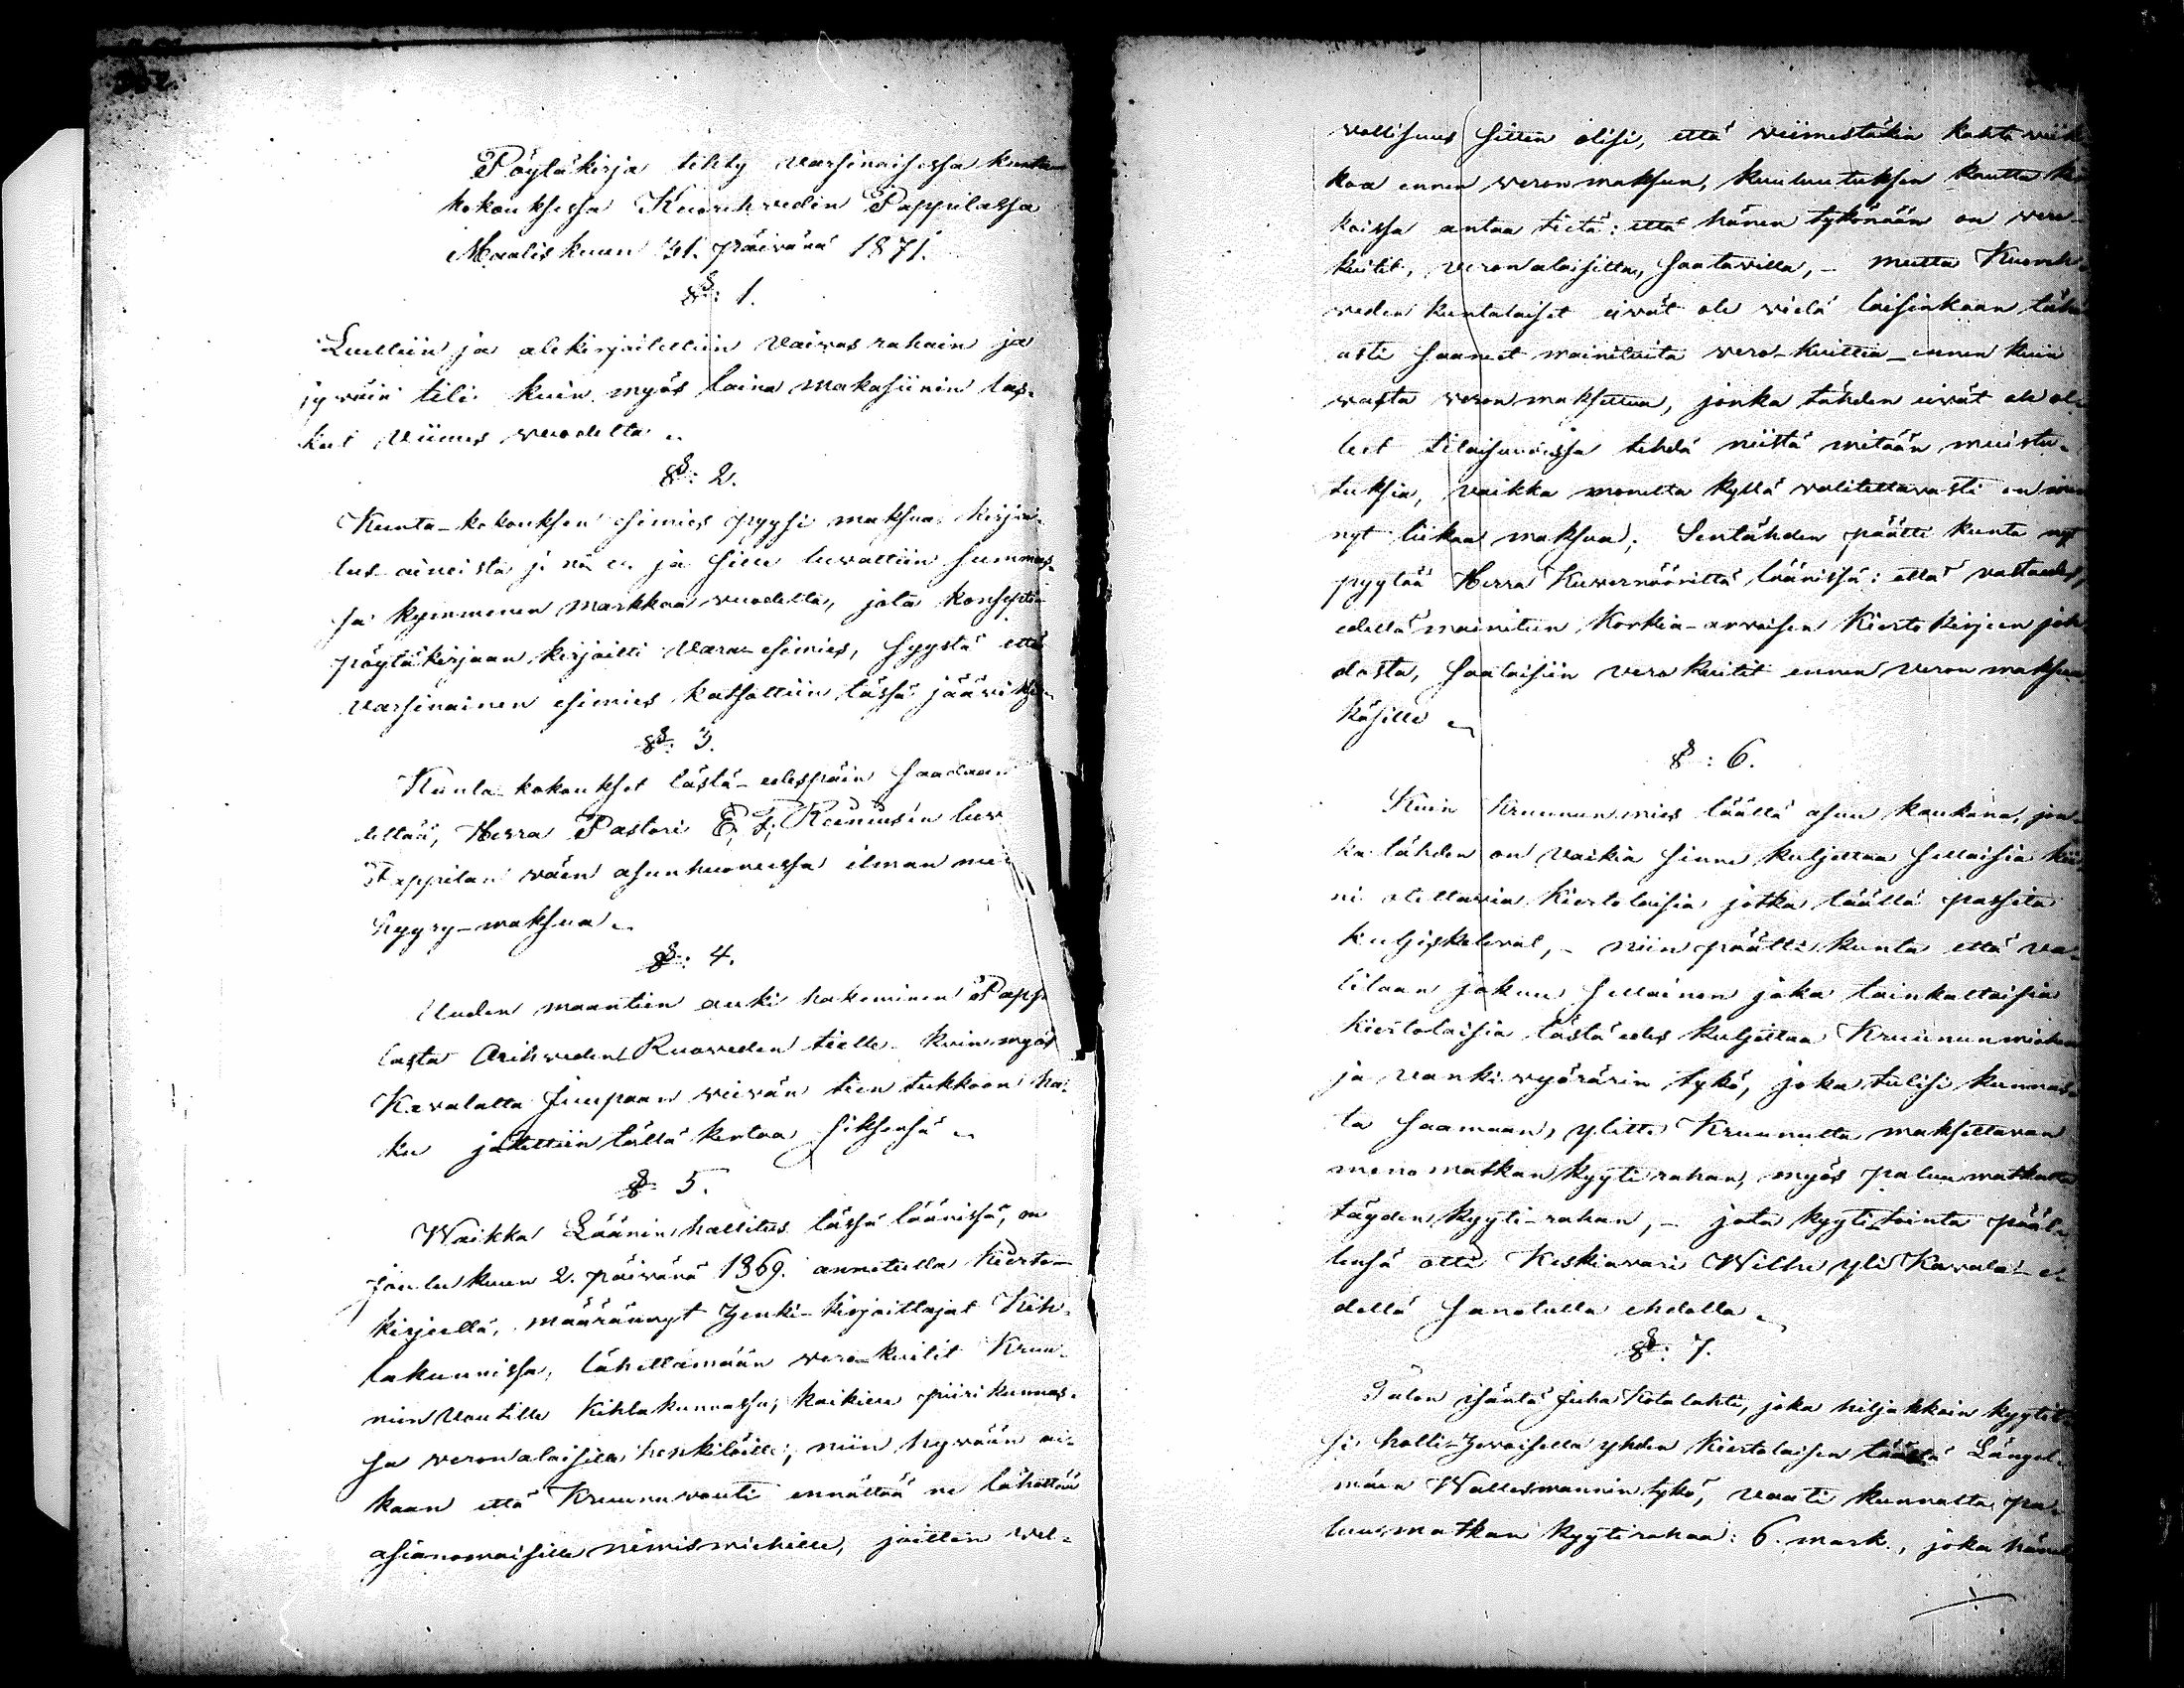 Pöytäkirja tehty varsinaisessa kunta
kokouksessa Kuorehveden Pappilassa
Maaliskuun 31. päivänä 1871.
§: 1.
Luettiin ja alekirjoitettiin Vaivas rahain ja
jyväin tili kuin myös laina makasiinin las-
kut viimes vuodelta.
§: 2.
Kunta-kokouksen esimies pyysi maksua kirjoi-
tus aineista j: n: e: ja sille luvattiin summas-
sa kymmenen markkaa vuodelta, jota konsepti
pöytäkirjaan kirjoitti Vara-esimies, syystä että
varsinainen esimies katsottiin tässä jäävi
§: 3.
Kunta-kokoukset tästä-edespäin saadaan
tettää, Herra Pastori Reniusen luv
Pappilan väen asunhuoneissa ilman
hyyry-maksua.
§: 4.
Uuden maantien auki hakeminen Papp
lasta Arihveden Ruoveden tielle kuin myös
Kavalalta Juupaan veivän tien tukkoon ha-
ku jätettiin tällä kertaa siksensä.
§: 5.
Waikka Läänin hallitus tässä läänissä, on
Joulukuun 2. päivänä 1869. annetulla kierto-
kirjeellä, määrännyt henki-kirjoittajat Kih-
lakunnissa, lähettämään vero-kuitit Kruu-
nun voutille Kihlakunnassa, kaikille piirikunnas-
sa veronalaisille henkilöille; niin hyvään ai-
kaan että Kruununvouti ennättää ne lähettää
asianomaisille nimismiehille, joitten vel-
vollisuus sitten olisi, että viimestäkin kahta viik
koa ennen veron maksun, kuuluutuksen kautta kir
koissa antaa tietä: että hänen tykönään on vero-
kuitit, veronalaisilta, saatavilla, - mutta Kuoreh-
veden kuntalaiset eivät ole vielä laisinkaan tähä
asti saaneet mainituita vero-kuittia ennen kuin
vasta veron maksettua, jonka tähden eivät ole ol-
leet tilaisuudessa tehdä niistä mitään muistu-
tuksia, vaikka monelta kyllä valitettavasti on
nyt liikaa maksua; Sentähden päätti kunta nyt
pyytää Herra Kuvernööriltä läänissä: että vastaudes
edellä mainitun Korkia-arvoisen Kiertokirjeen joh
dosta, saataisiin vero kuitit ennen veron maksua
käsille.
§: 6.
Kuin Kruunun mies täällä asuu kaukana, jon-
ka tähden on vaikia sinne kuljettaa sellaisia kii-
ni otettavia kiertolaisia jotka täällä passita
kuljeskelevat, - niin päätti kunta että va-
litaan jokuu sellainen joka tainkaltaisia
kiertolaisia tästä edes kuljettaa Kruunun miehen
ja vanki vyörärin tykö, joka tulisi kunnas-
ta saamaan, ylitte Kruunulta maksettavan
meno matkan kyyti rahan, myös paluu matkalta
täyden kyyti-rahan, - jota kyyti tointa pääl-
lensä otti Keskievari Wilhu yli Kavala e-
dellä sanotulla ehdolla.
§: 7.
Talon isäntä Juha Kotalahti, joka hiljakkoin kyyti
si holli-hevoisella yhden kiertolaisen täältä Längel-
mäen Wallesmannin tykö, vaati kunnalta pa-
luusmatkan kyytirahaa: 6. mark., joka hänel